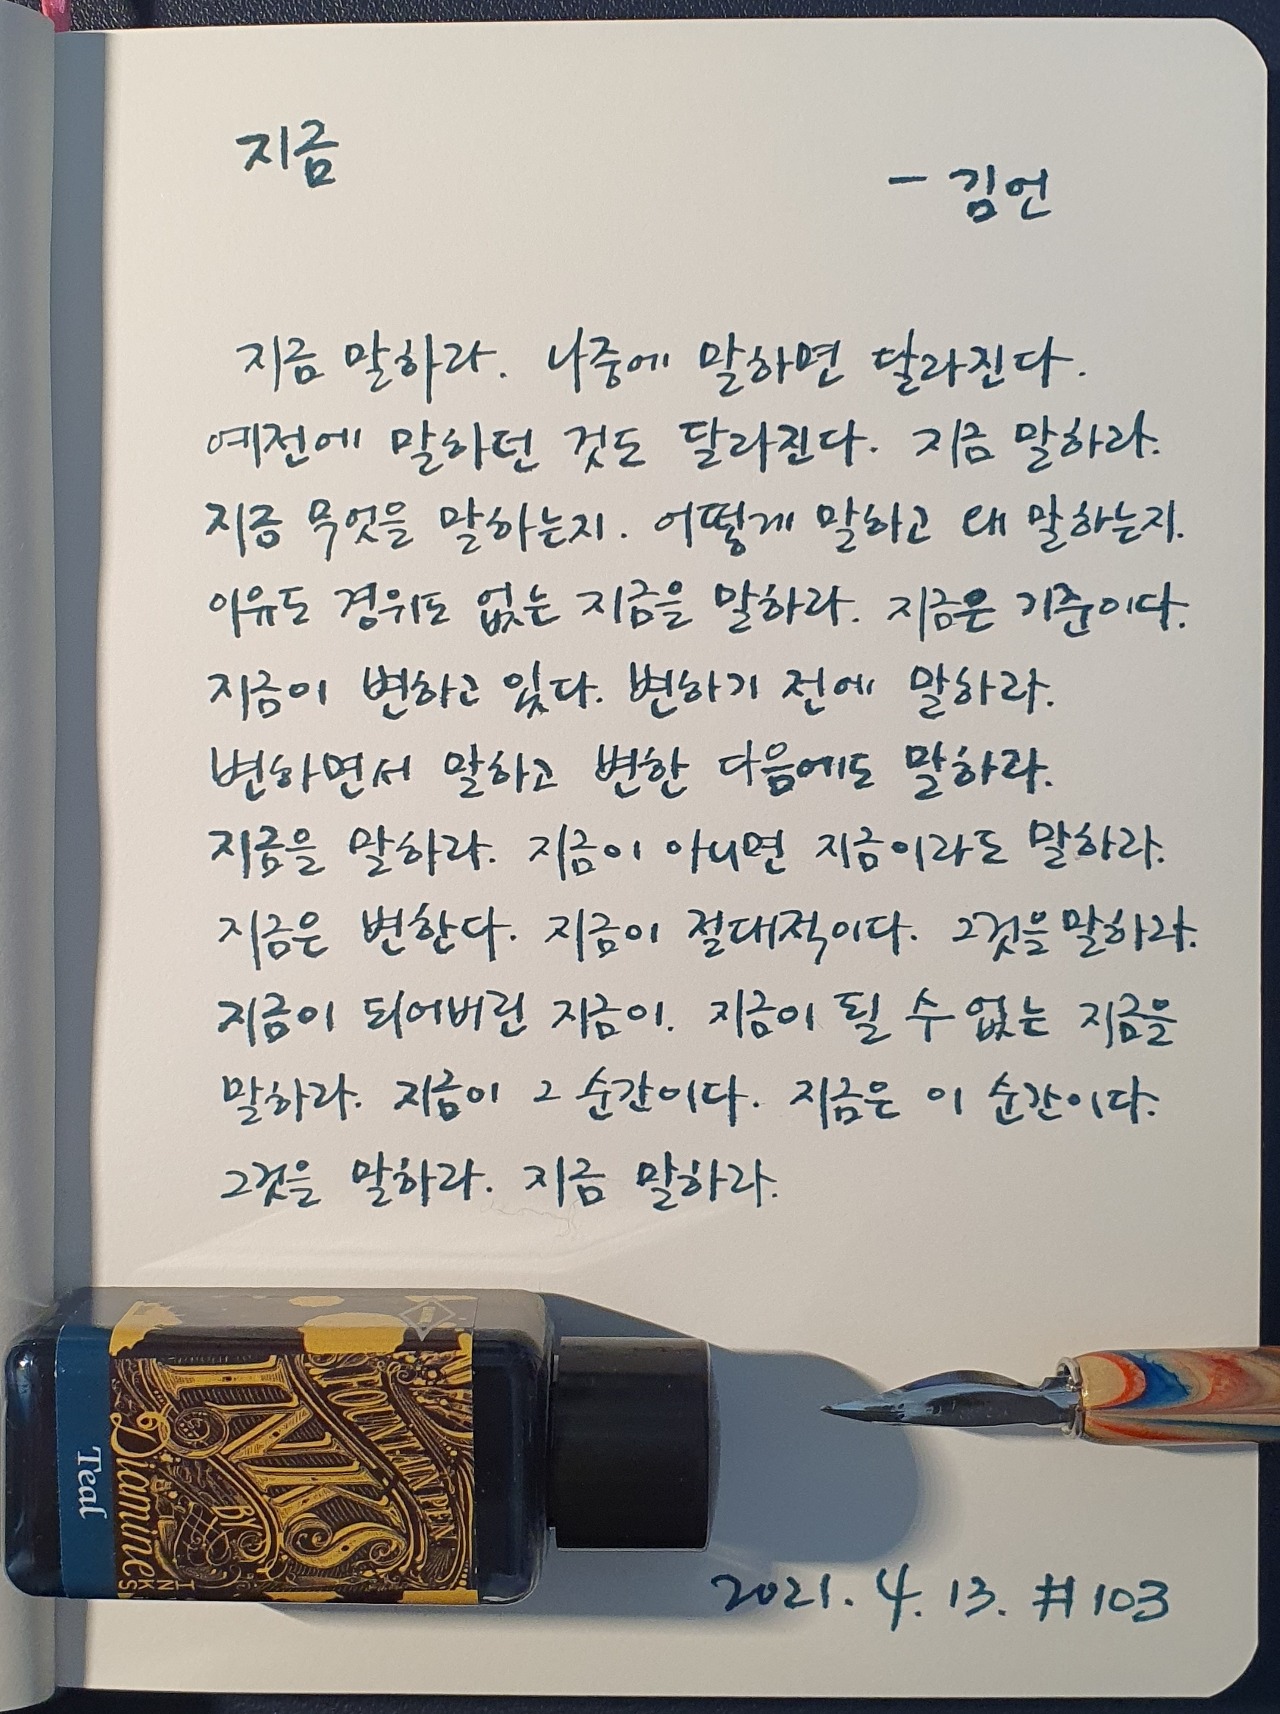 지금
- 김언
지금 말하라. 나중에 말하면 달라진다.
예전에 말하던 것도 달라진다. 지금 말하라.
지금 무엇을 말하는지. 어떻게 말하고 왜 말하는지.
이유도 경위도 없는 지금을 말하라. 지금은 기준이다.
지금이 변하고 있다. 변하기 전에 말하라.
변하면서 말하고 변한 다음에도 말하라.
지금을 말하라. 지금이 아니면 지금이라도 말하라.
지금은 변한다. 지금이 절대적이다. 그것을 말하라.
지금이 되어버린 지금이. 지금이 될 수 없는 지금을
말하라. 지금이 그 순간이다. 지금은 이 순간이다.
그것을 말하라. 지금 말하라.
FOUNTAIN PEN
INKS
BY
Diamine
Teal
2021. 4. 13. #103